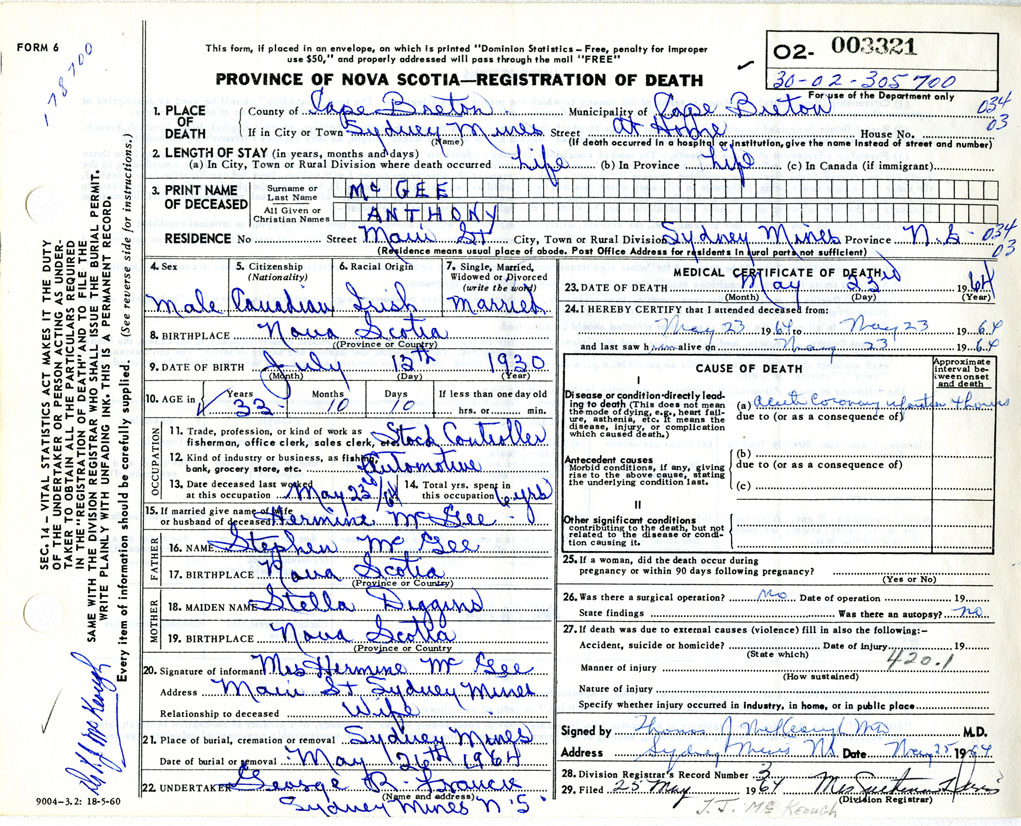 FORM 6
- 78700
This form, if placed in an envelope, on which is printed "Dominion Statistics – Free, penalty for improper
use $50," and properly addressed will pass through the mail "FREE"
PROVINCE OF NOVA SCOTIA—REGISTRATION OF DEATH
O2- 003321
30-02-305700
For use of the Department only
034
03
1. PLACE OF DEATH County of Cape Breton Municipality of Cape Breton
If in City or Town Sydney Mines Street At Home House No.
(Name) (If death occurred in a hospital or institution, give name instead of street and number)
2. LENGTH OF STAY (in years, months and days)
(a) In City, Town or Rural Division where death occurred Life (b) In Province Life (c) In Canada (if immigrant)
3. PRINT NAME OF DECEASED
Surname or Last Name Mc GEE
All Given or Christian Names ANTHONY
RESIDENCE No Street Main St City, Town or Rural Division Sydney Mines Province N.S- 034
03
(Residence means usual place of abode. Post Office Address for residents in rural parts not sufficient)
4. Sex 5. Citizenship (Nationality) 6. Racial Origin 7. Single, Married, Widowed or Divorced (write the word)
Male Canadian Irish Married
8. BIRTHPLACE Nova Scotia
(Province or Country)
9. DATE OF BIRTH July 13th 1930
(Month) (Day) (Year)
10. AGE in Years Months Days If less than one day old
33 10 10 hrs. or min.
OCCUPATION
11. Trade, profession, or kind of work as
fisherman, office clerk, sales clerk, etc. Stock Controller
12. Kind of industry or business, as fishing,
bank, grocery store, etc. Automotive
13. Date deceased last worked
at this occupation May 23rd/64
14. Total yrs. spent in
this occupation 6 yrs
15. If married give name of wife
or husband of deceased Hermine Mc Gee
FATHER
16. NAME Stephen Mc Gee
17. BIRTHPLACE Nova Scotia
(Province or Country)
MOTHER
18. MAIDEN NAME Stella Diggins
19. BIRTHPLACE Nova Scotia
(Province or Country)
20. Signature of informant Mrs Hermine Mc Gee
Address Main St Sydney Mines
Relationship to deceased Wife
21. Place of burial, cremation or removal Sydney Mines
Date of burial or removal May 26th 1964
22. UNDERTAKER George R. Francis
(Name and address)
Sydney Mines N.S
MEDICAL CERTIFICATE OF DEATH
23. DATE OF DEATH May 23rd 1964
(Month) (Day) (Year)
24. I HEREBY CERTIFY that I attended deceased from:
May 23 1964 to May 23 1964
and last saw him alive on May 23 1964
CAUSE OF DEATH
Approximate interval between onset and death
I
Disease or condition directly leading
to death (This does not mean
the mode of dying, e.g., heart failure,
asthenia, etc. It means the
disease, injury, or complication
which caused death.)
(a) Acute Coronary infarction 4 hours
due to (or as a consequence of)
Antecedent causes
Morbid conditions, if any, giving
rise to the above cause, stating
the underlying condition last.
(b)
due to (or as a consequence of)
(c)
II
Other significant conditions
contributing to the death, but not
related to the disease or condition
causing it.
25. If a woman, did the death occur during
pregnancy or within 90 days following pregnancy?
(Yes or No)
26. Was there a surgical operation? No Date of operation 19
State findings Was there an autopsy? No
27. If death was due to external causes (violence) fill in also the following:–
Accident, suicide or homicide? Date of injury 19
(State which)
420.1
Manner of injury
(How sustained)
Nature of injury
Specify whether injury occurred in Industry, in home, or in public place
Signed by Thomas J McKeough MD M.D.
Address Sydney Mines NS Date May 25 1964
28. Division Registrar's Record Number 3
29. Filed 25 May 1964
(Division Registrar)
T.J. Mc Keough
SEC. 14 – VITAL STATISTICS ACT MAKES IT THE DUTY
OF THE UNDERTAKER OR PERSON ACTING AS UNDERTAKER
TO OBTAIN ALL THE PARTICULARS REQUIRED
IN THE "REGISTRATION OF DEATH" AND TO FILE THE
SAME WITH THE DIVISION REGISTRAR WHO SHALL ISSUE THE BURIAL PERMIT.
WRITE PLAINLY WITH UNFADING INK. THIS IS A PERMANENT RECORD.
Every item of information should be carefully supplied. (See reverse side for instructions.)
Mc Keough
9004–3.2: 18-5-60